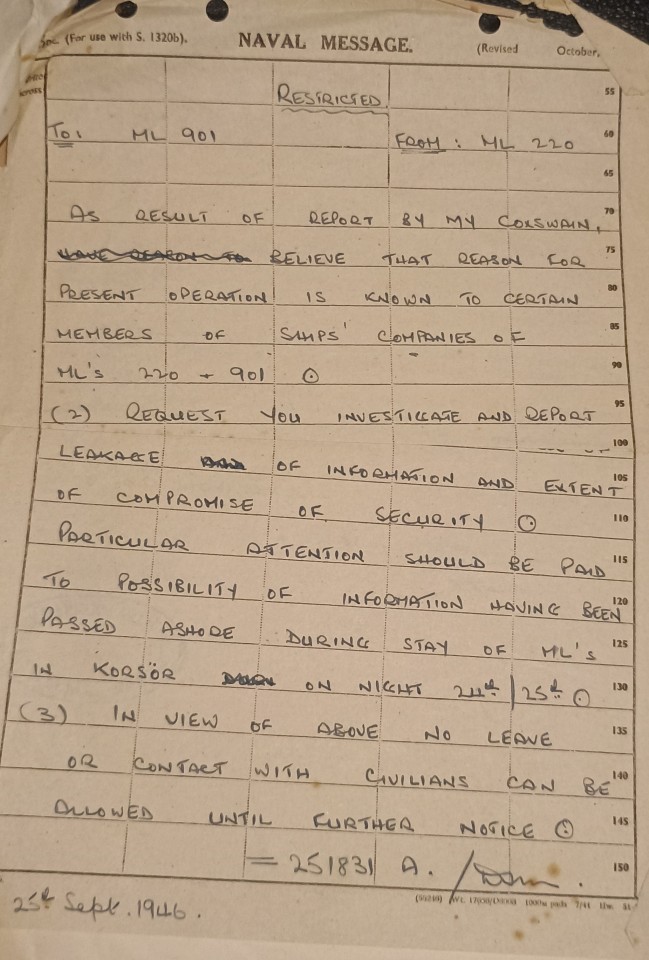 (For use with S. 1320b). NAVAL MESSAGE. (Revised October,
RESTRICTED 55
TO: ML 901 FROM: ML 220 60
65
AS RESULT OF REPORT BY MY COXSWAIN, 70
BELIEVE THAT REASON FOR 75
PRESENT OPERATION IS KNOWN TO CERTAIN 80
MEMBERS OF SHIPS' COMPANIES OF 85
ML'S 220 + 901 ⊙ 90
(2) REQUEST YOU INVESTIGATE AND REPORT 95
100
LEAKAGE OF INFORMATION AND EXTENT 105
OF COMPROMISE OF SECURITY ⊙ 110
PARTICULAR ATTENTION SHOULD BE PAID 115
TO POSSIBILITY OF INFORMATION HAVING BEEN 120
PASSED ASHORE DURING STAY OF ML'S 125
IN KORSÖR ON NIGHT 24th/25th ⊙ 130
(3) IN VIEW OF ABOVE NO LEAVE 135
OR CONTACT WITH CIVILIANS CAN BE 140
ALLOWED UNTIL FURTHER NOTICE ⊙ 145
= 251831 A. 150
25th Sept. 1946.